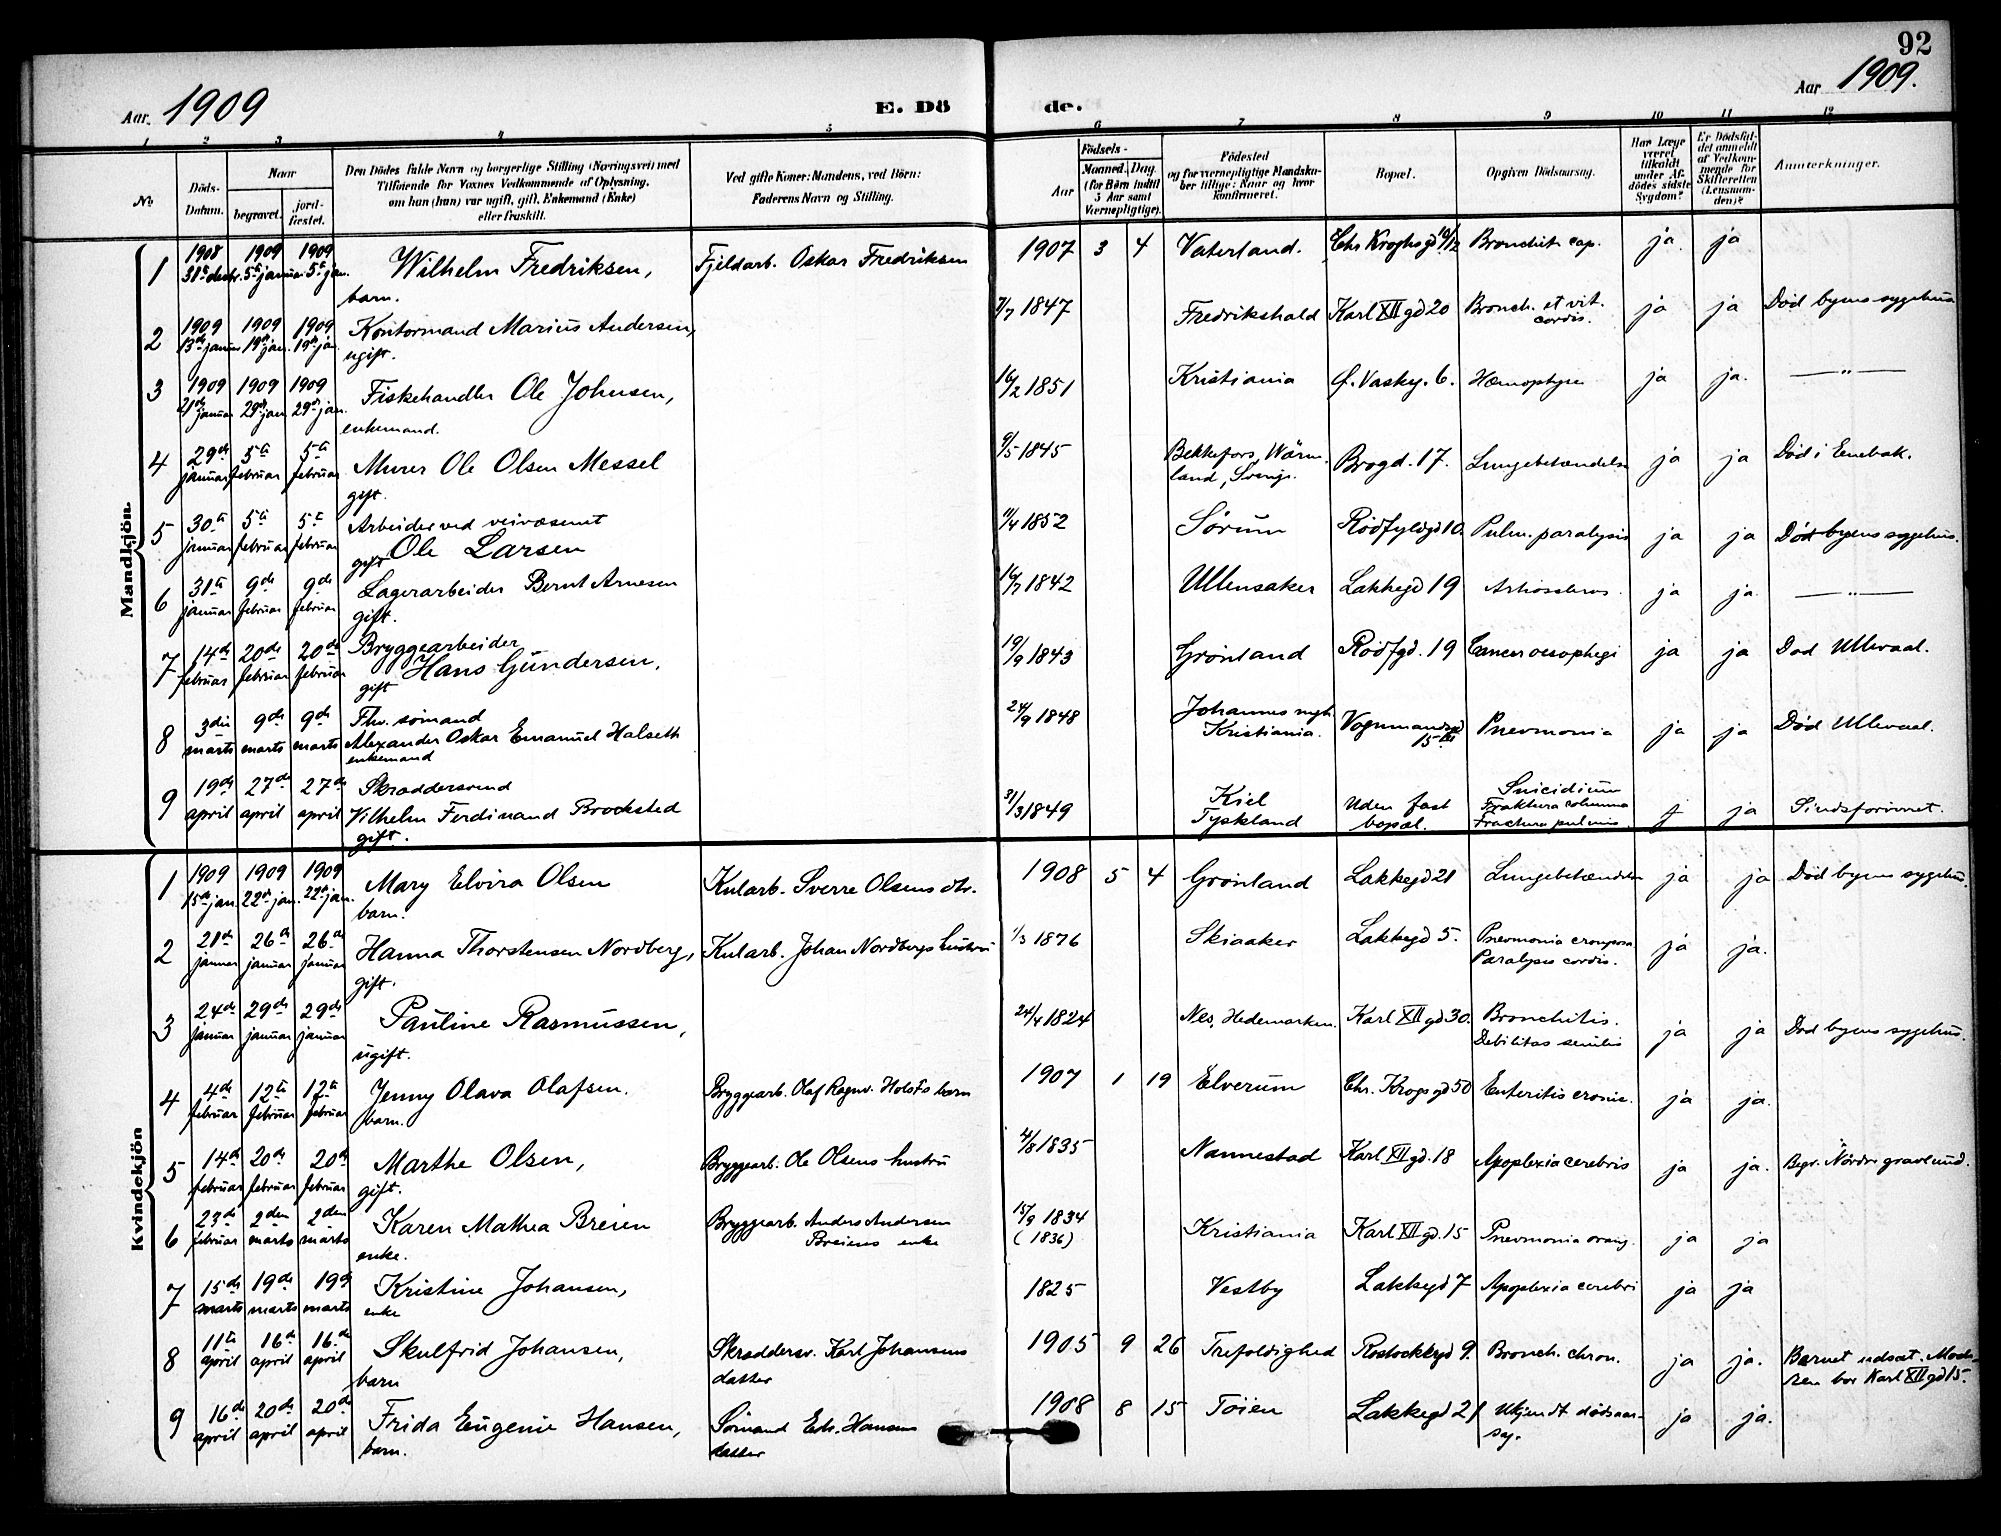 92
Aar. 1909
E. Dö
de.
Aar 1909.
1 2 3 4 5 6 7 8 9 10 11 12
No
Döds-Datum.
Naar
begravet.
jord-fæstet.
Den Dödes fulde Navn og borgerlige Stilling (Næringsvei) med
Tilföiende for Voxnes Vedkommende af Oplysning,
om han (hun) var ugift, gift, Enkemand (Enke)
eller fraskilt.
Ved gifte Koner: Mandens, ved Börn:
Faderens Navn og Stilling.
Födsels-
Aar
Maaned. Dag.
(for Börn indtil
5 Aar samt
Værnepligtige).
Födested
og for værnepligtige Mandskaber tillige: Naar og hvor
konfirmeret.
Bopæl.
Opgiven Dödsaarsag.
Har Læge
været
tilkaldt
under Afdödes sidste
Sygdom?
Er Dödsfaldet anmeldt
af Vedkommende for
Skifteretten
(Lensmanden)?
Anmerkninger.
Mandkjön.
1 1908 31te decbr. 1909 5te januar 1909 5te jan. Wilhelm Fredriksen, barn. Fjeldarb. Oskar Fredriksen 1907 3 4 Vaterland. Chr Kroghsgd Bronchit. cap. ja ja
2 1909 13de januar 1909 19de jan. 1909 19de jan. Kontormand Marius Andersen, ugift. 7/7 1847 Fredrikshald Karl XII gd 20 Bronch. et vit. cordis. ja ja Död byens sygehus
3 1909 21de januar 1909 29de jan. 1909 29de jan. Fiskehandler Ole Johnsen, enkemand. 16/2 1851 Kristiania Ø. Vaskg. 6. Hæmoptyse ja ja. — " —
4 29de januar 5te februar 5te februar Murer Ole Olsen Messel gift. 9/5 1845 Bekkefors, Wärmland, Sverige. Brogd. 17. Lungebetændelse ja ja Död i Enebak.
5 30te januar 5te februar 5te februar Arbeider ved veivæsenet Ole Larsen gift 1852 Sørum Rödfyldgd 10. Pulm. paralysis ja ja Död byens sygehus.
6 31te januar 9de februar 9de februar Lagerarbeider Bernt Arnesen gift. 16/7 1842 Ullensaker Lakkegd 19 ja ja — " —
7 14de februar 20de februar 20de februar Bryggearbeider Hans Gundersen, gift 19/9 1843 Grønland Rödfgd. 19 Cancer oesophegi ja ja Död Ullevaal.
8 3die marts 9de marts 9de marts Fhv. sömand Alexander Oskar Emanuel Halseth enkemand 24/9 1848 Johannes mgh. Kristiania. Vognmandsgd 15 III Pnevmonia ja ja Död Ullevaal.
9 19de april 27de april 27de april Skraddersvend Vilhelm Ferdinand Brocksted gift. 31/3 1849 Kiel Tyskland Uden fast bopæl. Suicidium Fraktura columna Fractura pulmis j ja Sindsforvirret.
Kvindekjön
1 1909 15de jan. 1909 22de jan. 1909 22de jan. Mary Elvira Olsen barn. Kularb. Sverre Olsens dtr. 1908 5 4 Grønland Lakkegd 21 Lungebetændelse ja ja Död byens sygehus.
2 21de januar 26de januar 26de januar Hanna Thorstensen Nordberg, gift. Kularb. Johan Nordbergs hustru 1/3 1876 Skiaaker Lakkegd 5. Pnevmonia crouposa Paralysis cordis. ja ja.
3 24de januar 29de januar 29de januar Pauline Rasmussen, ugift. 24/4 1824 Nes, Hedemarken. Karl XII gd 30. Bronchitis. Debilitas senilis ja ja Död byens sygehus.
4 4de februar 12te februar 12te februar Jenny Olava Olafsen. barn. Bryggearb. Olaf Ragnv. Holsts barn 1907 1 19 Elverum Chr. Krogs gd 50 Enteritis cronic. ja ja.
5 14de februar 20de februar 20de februar Marthe Olsen, gift. Bryggearb. Ole Olsens hustru 4/8 1835 Nannestad Karl XII gd. 18 Apoplexia cerebris ja ja. Begr. Nordre gravlund.
6 23de februar 2den marts 2den marts Karen Mathea Breien enke. Bryggearb. Anders Andersen Breiens enke 15/9 1834 (1836) Kristiania Karl XII gd. 15 Pnevmonia ja ja
7 15de marts 19de marts 199 marts Kristine Johansen, enke 1825 Vestby Lakkegd 7 Apoplexia cerebri ja ja
8 11te april 16de april 16de april Skulfrid Johansen, barn Skraddersv. Karl Johansens datter 1905 9 26 Trefoldighed Rostockgd 9. Bronch. chron. ja ja. Barnet udsat. Moderen bor Karl XII gd 15.
9 16de april 20de april 20de april Frida Eugenie Hansen, barn. Sømand Edv. Hansens datter 1908 8 15 Töien Lakkegd 21 Ukjendt dödsaarsag. ja ja.